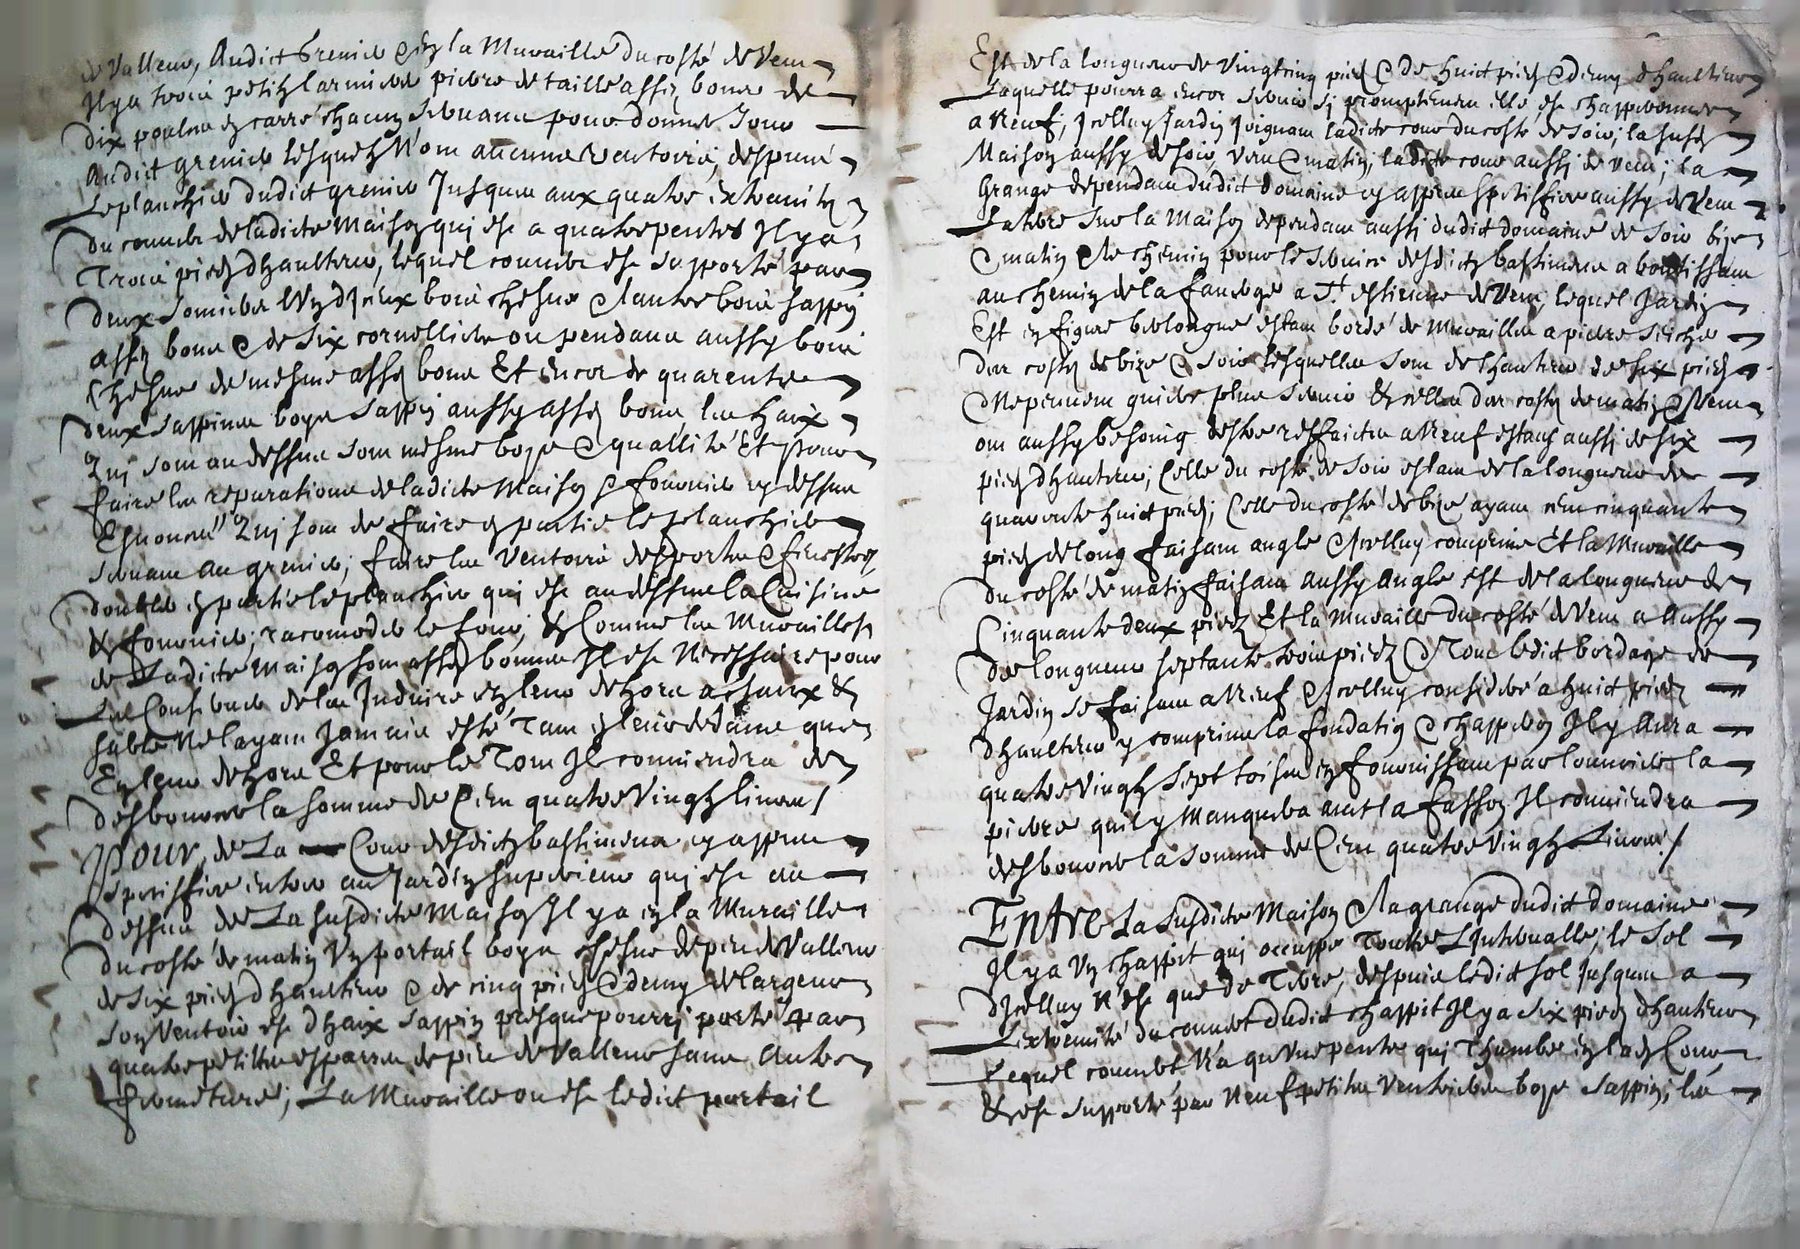 de Valleur, Audict Grenier et en la Muraille du costé de Vent
Il y a trois petitz larmiers pierre de taille assez bons de
dix poulces en carré chacun servans pour donner Jour
Audict grenier lesquelz N'ont aucuns Ventoirs, despuis
Le planchier dudict grenier Jusques aux quatre extremitez
du couvert de ladicte Maison qui est a quatre pentes Il y a
Trois piedz d'haulteur, lequel couvert est supporté par
deux somiers boix chesne et l'autre boix sappin
assez bons et de six cornelliers ou pendans aussy boix
Chesne de mesme assez bons Et Encor de quarente
deux sappines boys sappin aussy assez bons les haix
Qui sont au dessus sont mesme boys et quallité Et pour
faire les reparations de ladicte Maison et fournier cy dessus
Esnoncés Qui sont de faire en partie le planchier
servant au grenier, faire les Ventoirs des portes et fenestres
doubler en partie le planchier qui est au dessus la Cuisine
Et fournier, racomoder le four, Et Comme les Murailles
de Ladicte Maison sont assez bonnes Il est Necessaire pour
Les Conserver de les Induire en leur dehors a chaux Et
sable Ne l'ayant Jamais esté Tant en leur dedans que
En leur dehors Et pour le Tout Il conviendra de
desbourser la somme de Cent quatre Vingtz livres /
Pour, de La Cour desdictz bastimens cy appres
speciffiés entrer au Jardin superieur qui est au
dessus de La susdicte Maison Il y a en la Muraille
du costé de matin Un portail boys chesne de peu de Valleur
de six piedz d'haulteur et de cinq piedz et demy de largeur
son Ventoir est d'haix sappin presque pourri porté par
quatre petittes esparres de peu de Valleur sans Autre
fermeture; La Muraille ou est ledict portail
Est de la longueur de Vingtcinq piedz et de huict piedz et demy d'haulteur
Laquelle pourra encor servir si promptement elle est chapperonnée
a Neuf; Icelluy Jardin Joignant ladicte cour du costé de soir; la susd
Maison aussy de soir, vent et matin; ladicte cour aussi de vent; la
Grange dependant dudict domaine cy appres speciffiée aussy de Vent
L'atre sur la Maison dependant aussi dudict domaine de soir bize
et matin et le chemin pour le service desdictz bastimens aboutissant
au chemin de la a St estienne de Vent, lequel Jardin
Est en figure berlongue estant bordé de Murailles a pierre seiche
des costés de bize et soir lesquelles sont de hauteur de six piedz
et Ne peuvent guiere plus servir Et celles des costés de matin et Vent
ont aussy besoing d'estre reffaictes a Neuf estans aussi de six
piedz d'hauteur; Celle du costé de soir estant de la longueur de
quarente huict piedz; Celle du costé de bize ayant cent cinquante
piedz de long faisant angle et Icelluy comprins Et la Muraille
du costé de matin faisant aussy Angle est de la longueur de
Cinquante deux piedz Et la Muraille du costé de Vent a Aussy
de longueur septante trois piedz et Tout ledict bordage de
Jardin se faisant a Neuf et Icelluy consideré a huict piedz
d'haulteur y comprins la fondation et chapperon Il y Aura
quatre Vingtz sept toises en fournissant par l'ouvrier la
pierre quil y Manquera avec la fasson Il conviendra
desbourser la somme de Cent quatre Vingtz Livres /
Entre La susdicte Maison et la grange dudict domaine
Il y a Un chappit qui occuppe Toutte L'Intervalle; le sol
d'Icelluy N'est que de Terre, despuis ledict sol Jusques a
L'extremité du couvert dudict chappit Il y a six piedz d'hauteur
Lequel couvert N'a qu'une pente qui Thumbe en lad Cour
Et est supporté par Neuf petittes boys sappin; les